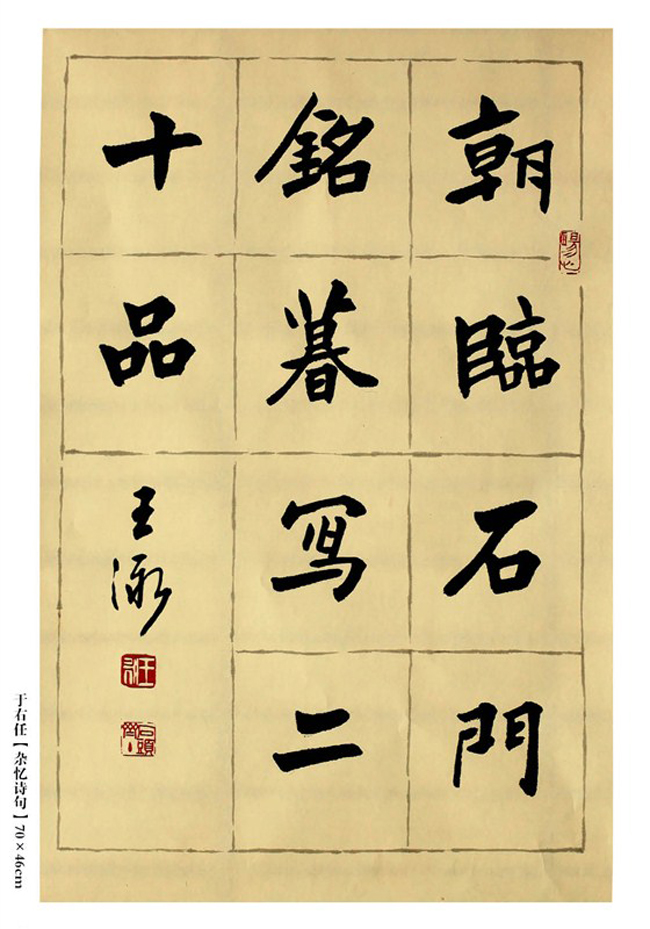 朝臨石門
銘暮寫二
十品
王
于右任【杂忆诗句】70×46cm